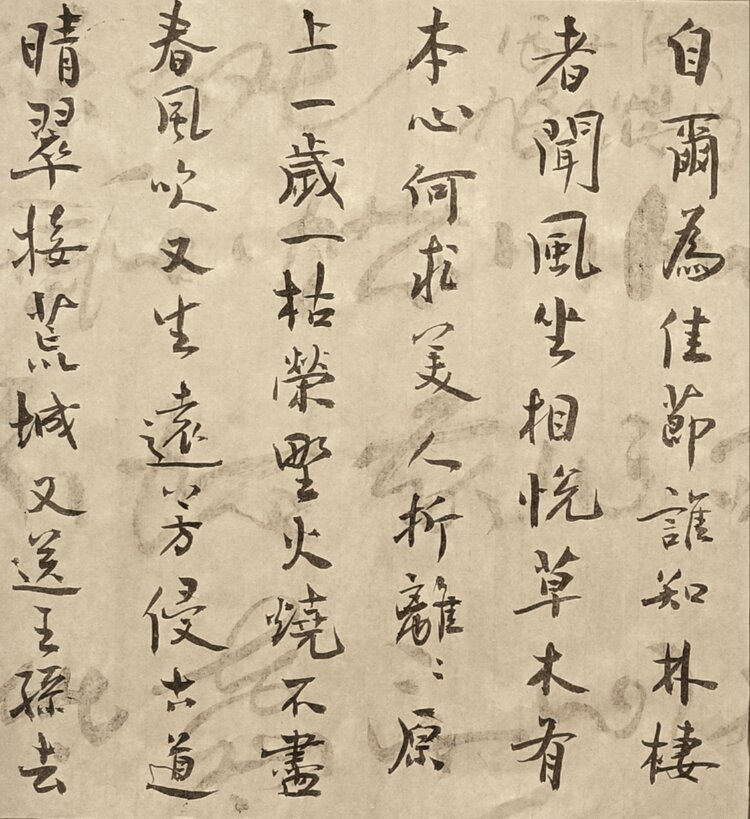 自爾為佳節誰知林棲
者聞風坐相悅草木有
本心何求美人折離〻原
上一歲一枯榮野火燒不盡
春風吹又生遠芳侵古道
晴翠接荒城又送王孫去